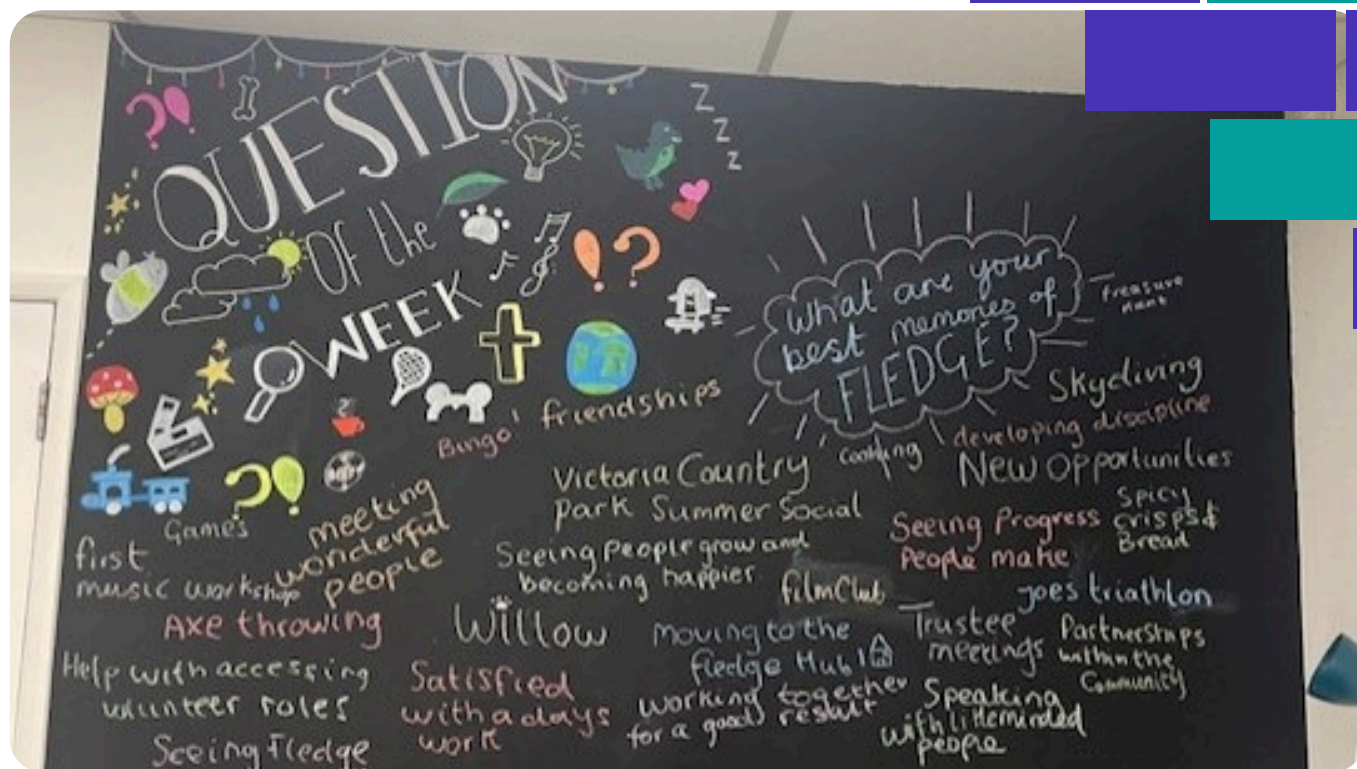 QUESTION
OF the
WEEK
z
z
z
What are your
best memories of
FLEDGE?
treasure
Hunt
Skydiving
friendships
Bingo!
developing discipline
Cooking
New opportunities
Victoria Country
Park Summer Social
Spicy
crisps &
Bread
Seeing Progress
People make
Games
meeting
wonderful
people
first
music workshop
Seeing People grow and
becoming happier
film Club
joes triathlon
Axe throwing
Willow
Moving to the
fledge Hub!
Trustee
meetings
Partnerships
within the
Community
Help with accessing
volunteer roles
Satisfied
with a days
work
working together
for a good result
Speaking
with likeminded
people
Seeing Fledge